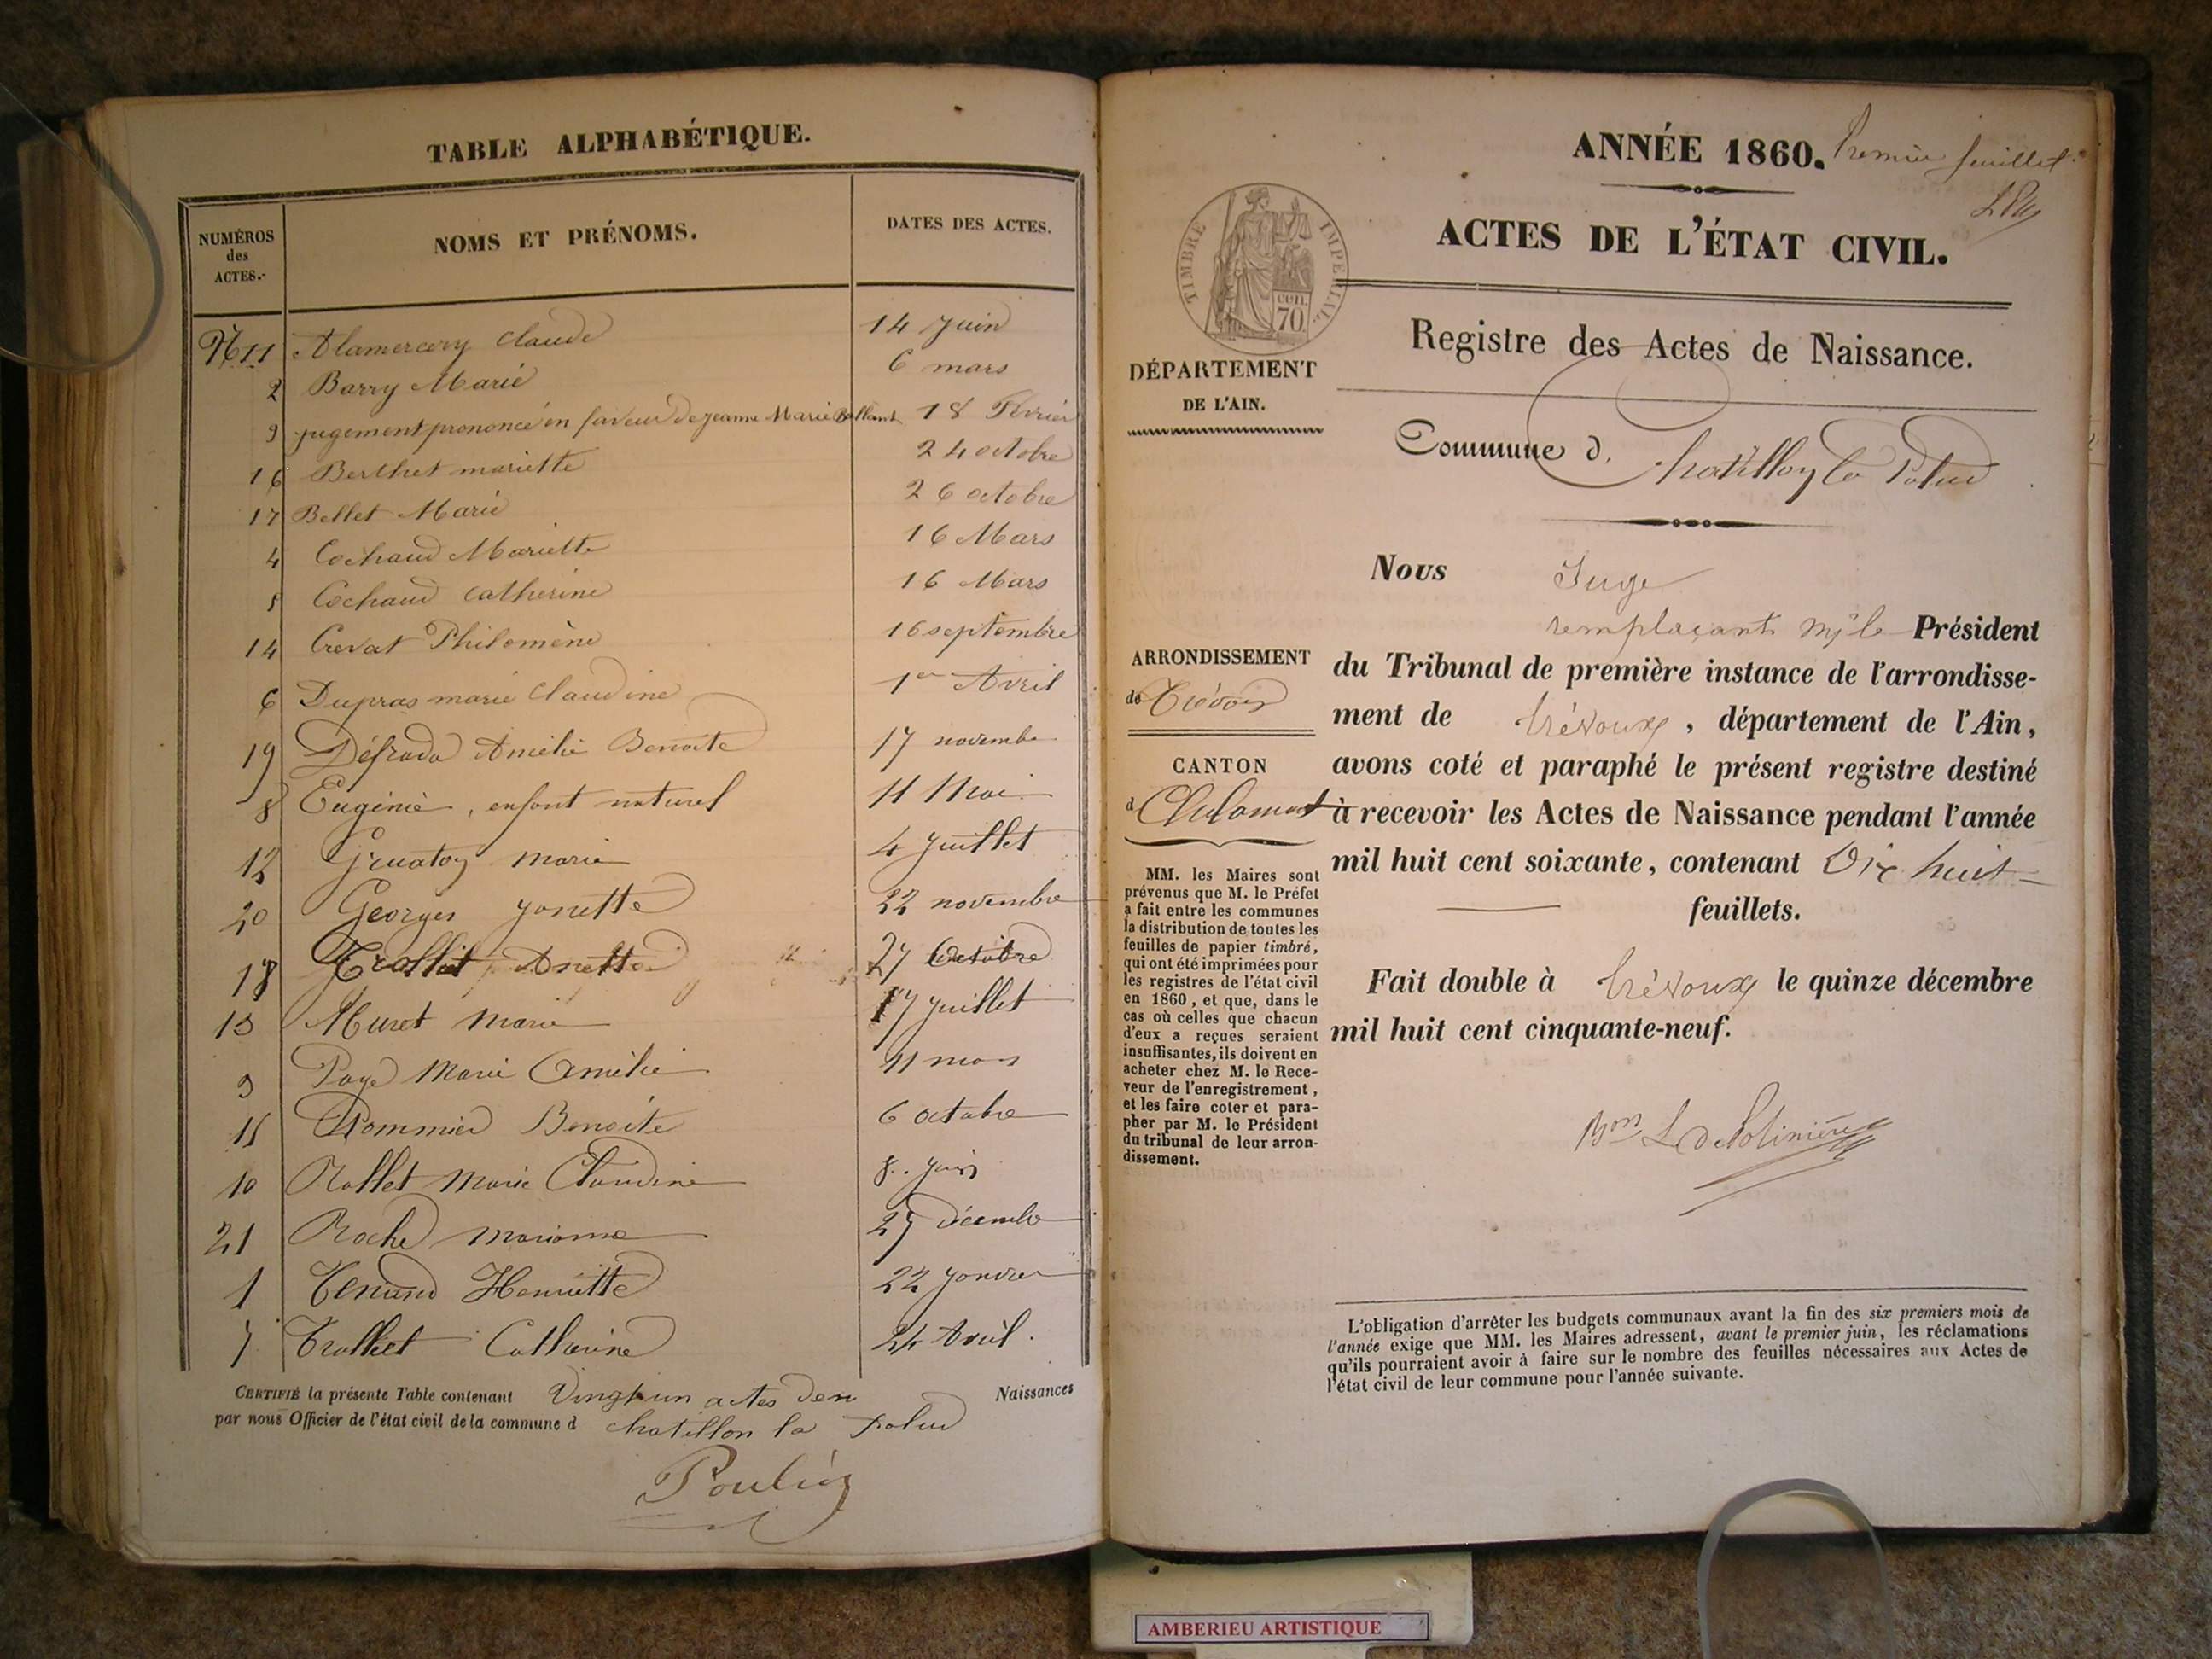 TABLE ALPHABÉTIQUE.
NUMÉROS des ACTES.
NOMS ET PRÉNOMS.
DATES DES ACTES.
N°11 Alamercery Claude 14 Juin
2 Barry Marie 6 mars
9 jugement prononcé en faveur de jeanne Marie Ballant 18 Février
16 Berthet mariette 24 octobre
17 Bellet Marie 26 octobre
4 Cochaud Mariette 16 Mars
5 Cochaud Catherine 16 Mars
14 Crevat Philomène 16 septembre
6 Dupras marie Claudine 1er Avril
19 Amélie Benoite 17 novembe
8 Eugénie, enfant naturel 11 Mai
12 marie 4 Juillet
20 Georges 22 novembre
18 Trolliet Anette 27 Octobre
13 Muret Marie 17 juillet
3 Page Marie Amélie 11 mars
15 Pommier Benoite 6 octobre
10 Rollet Marie Claudine 8. juin
21 Roche marianne 27 décembe
1 Henriette 22 janvier
7 Trolliet Catherine 24 Avril.
CERTIFIÉ la présente Table contenant Vingt un actes de Naissances
par nous Officier de l'état civil de la commune d chatillon la palud
ANNÉE 1860. Premier feuillet
TIMBRE IMPÉRIAL
cen. 70
ACTES DE L'ÉTAT CIVIL.
Registre des Actes de Naissance.
DÉPARTEMENT
DE L'AIN.
Commune d. Chatillon la Palud
Nous Juge
remplaçant Mr le Président
ARRONDISSEMENT
de Trévoux
du Tribunal de première instance de l'arrondisse-
ment de Trévoux, département de l'Ain,
avons coté et paraphé le présent registre destiné
CANTON
d Chalamont
à recevoir les Actes de Naissance pendant l'année
mil huit cent soixante, contenant Dix huit
feuillets.
MM. les Maires sont
prévenus que M. le Préfet
a fait entre les communes
la distribution de toutes les
feuilles de papier timbré,
qui ont été imprimées pour
les registres de l'état civil
en 1860, et que, dans le
cas où celles que chacun
d'eux a reçues seraient
insuffisantes, ils doivent en
acheter chez M. le Rece-
veur de l'enregistrement,
et les faire coter et para-
pher par M. le Président
du tribunal de leur arron-
dissement.
Fait double à Trévoux le quinze décembre
mil huit cent cinquante-neuf.
L'obligation d'arrêter les budgets communaux avant la fin des six premiers mois de
l'année exige que MM. les Maires adressent, avant le premier juin, les réclamations
qu'ils pourraient avoir à faire sur le nombre des feuilles nécessaires aux Actes de
l'état civil de leur commune pour l'année suivante.
AMBERIEU ARTISTIQUE